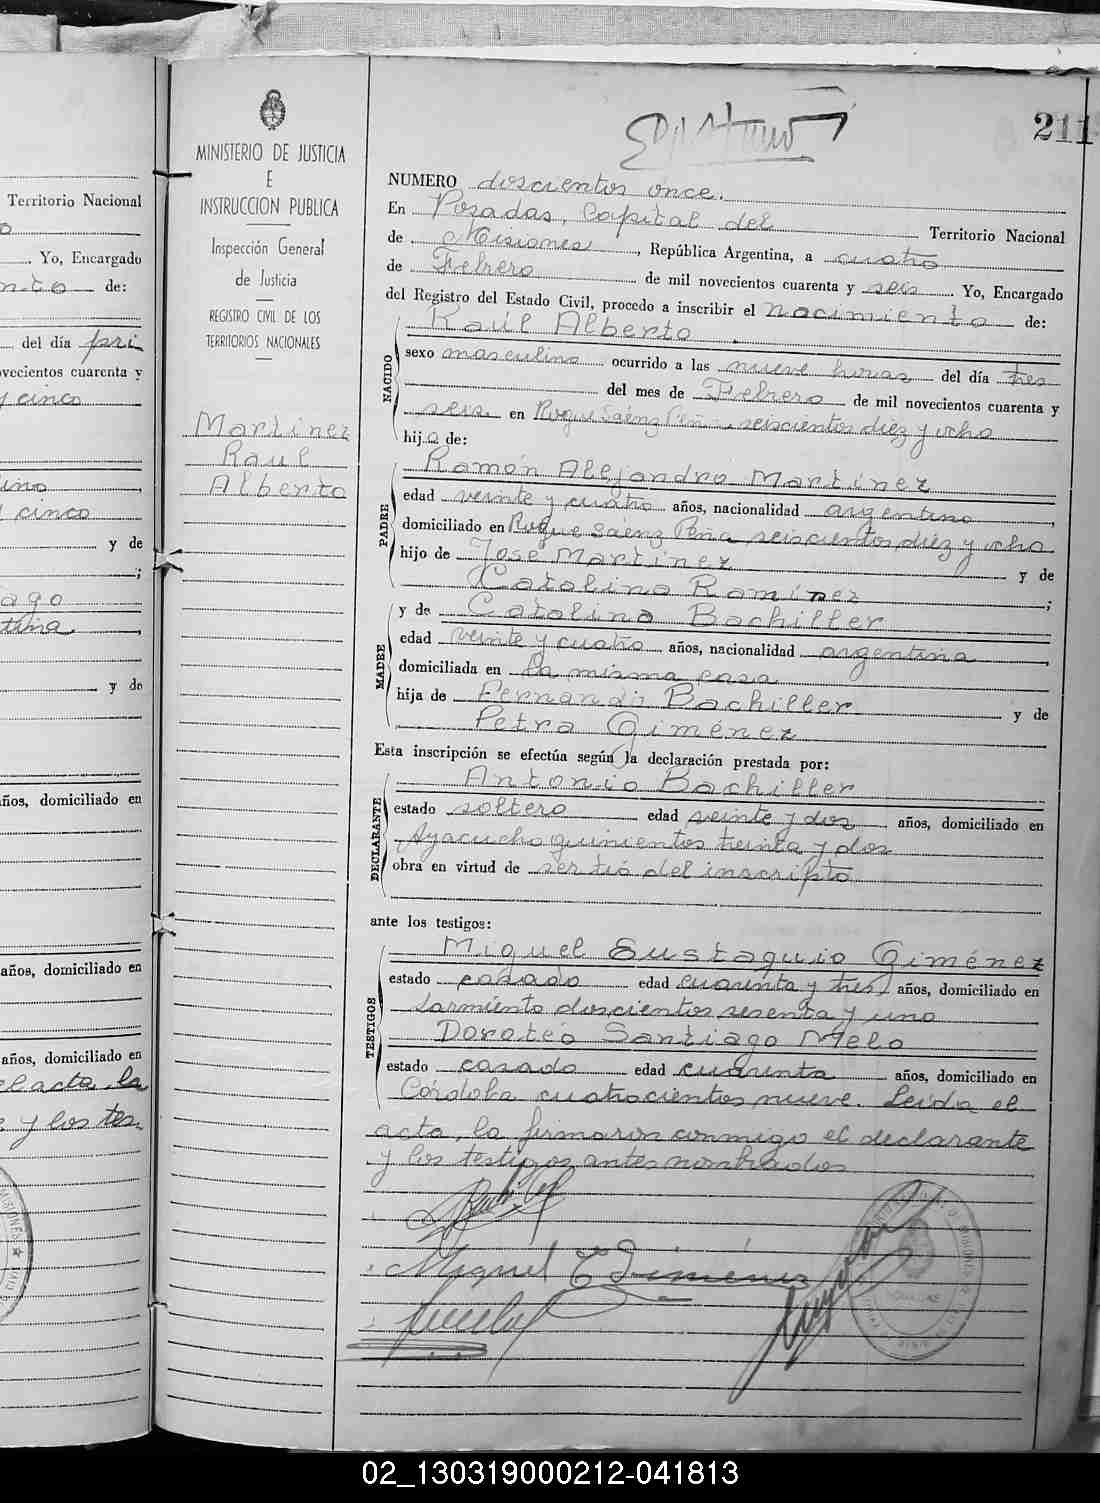 211
MINISTERIO DE JUSTICIA
E
INSTRUCCION PUBLICA
Inspección General
de Justicia
REGISTRO CIVIL DE LOS
TERRITORIOS NACIONALES
Martinez
Raul
Alberto
NUMERO doscientos once.
En Posadas, Capital del Territorio Nacional
de Misiones, República Argentina, a cuatro
de Febrero de mil novecientos cuarenta y seis Yo, Encargado
del Registro del Estado Civil, procedo a inscribir el nacimiento de:
NACIDO
Raúl Alberto
sexo masculino ocurrido a las nueve horas del día tres
del mes de Febrero de mil novecientos cuarenta y
seis en Roque Saénz Peña, seiscientos diez y ocho
hijo de:
PADRE
Ramón Alejandro Martinez
edad veinte y cuatro años, nacionalidad argentino,
domiciliado en Roque Saénz Peña seiscientos diez y ocho
hijo de José Martinez y de
Catalina Ramírez;
MADRE
y de Catalina Bachiller
edad veinte y cuatro años, nacionalidad argentina,
domiciliada en la misma casa
hija de Fernando Bachiller y de
Petra Giménez
Esta inscripción se efectúa según la declaración prestada por:
DECLARANTE
Antonio Bachiller
estado soltero edad veinte y dos años, domiciliado en
Ayacucho quinientos treinta y dos
obra en virtud de ser tío del inscripto
ante los testigos:
TESTIGOS
Miguel Eustaquio Giménez
estado casado edad cuarenta y tres años, domiciliado en
Sarmiento doscientos sesenta y uno
Doroteo Santiago Melo
estado casado edad cuarenta años, domiciliado en
Córdoba cuatrocientos nueve. Leida el
acta, la firmaron conmigo el declarante
y los testigos antes nombrados
Miguel E Giménez
Territorio Nacional
Yo, Encargado
de:
del día pri
novecientos cuarenta y
y cinco
y cinco
y de
y de
años, domiciliado en
años, domiciliado en
años, domiciliado en
el acta, la
y los tes
02_130319000212-041813